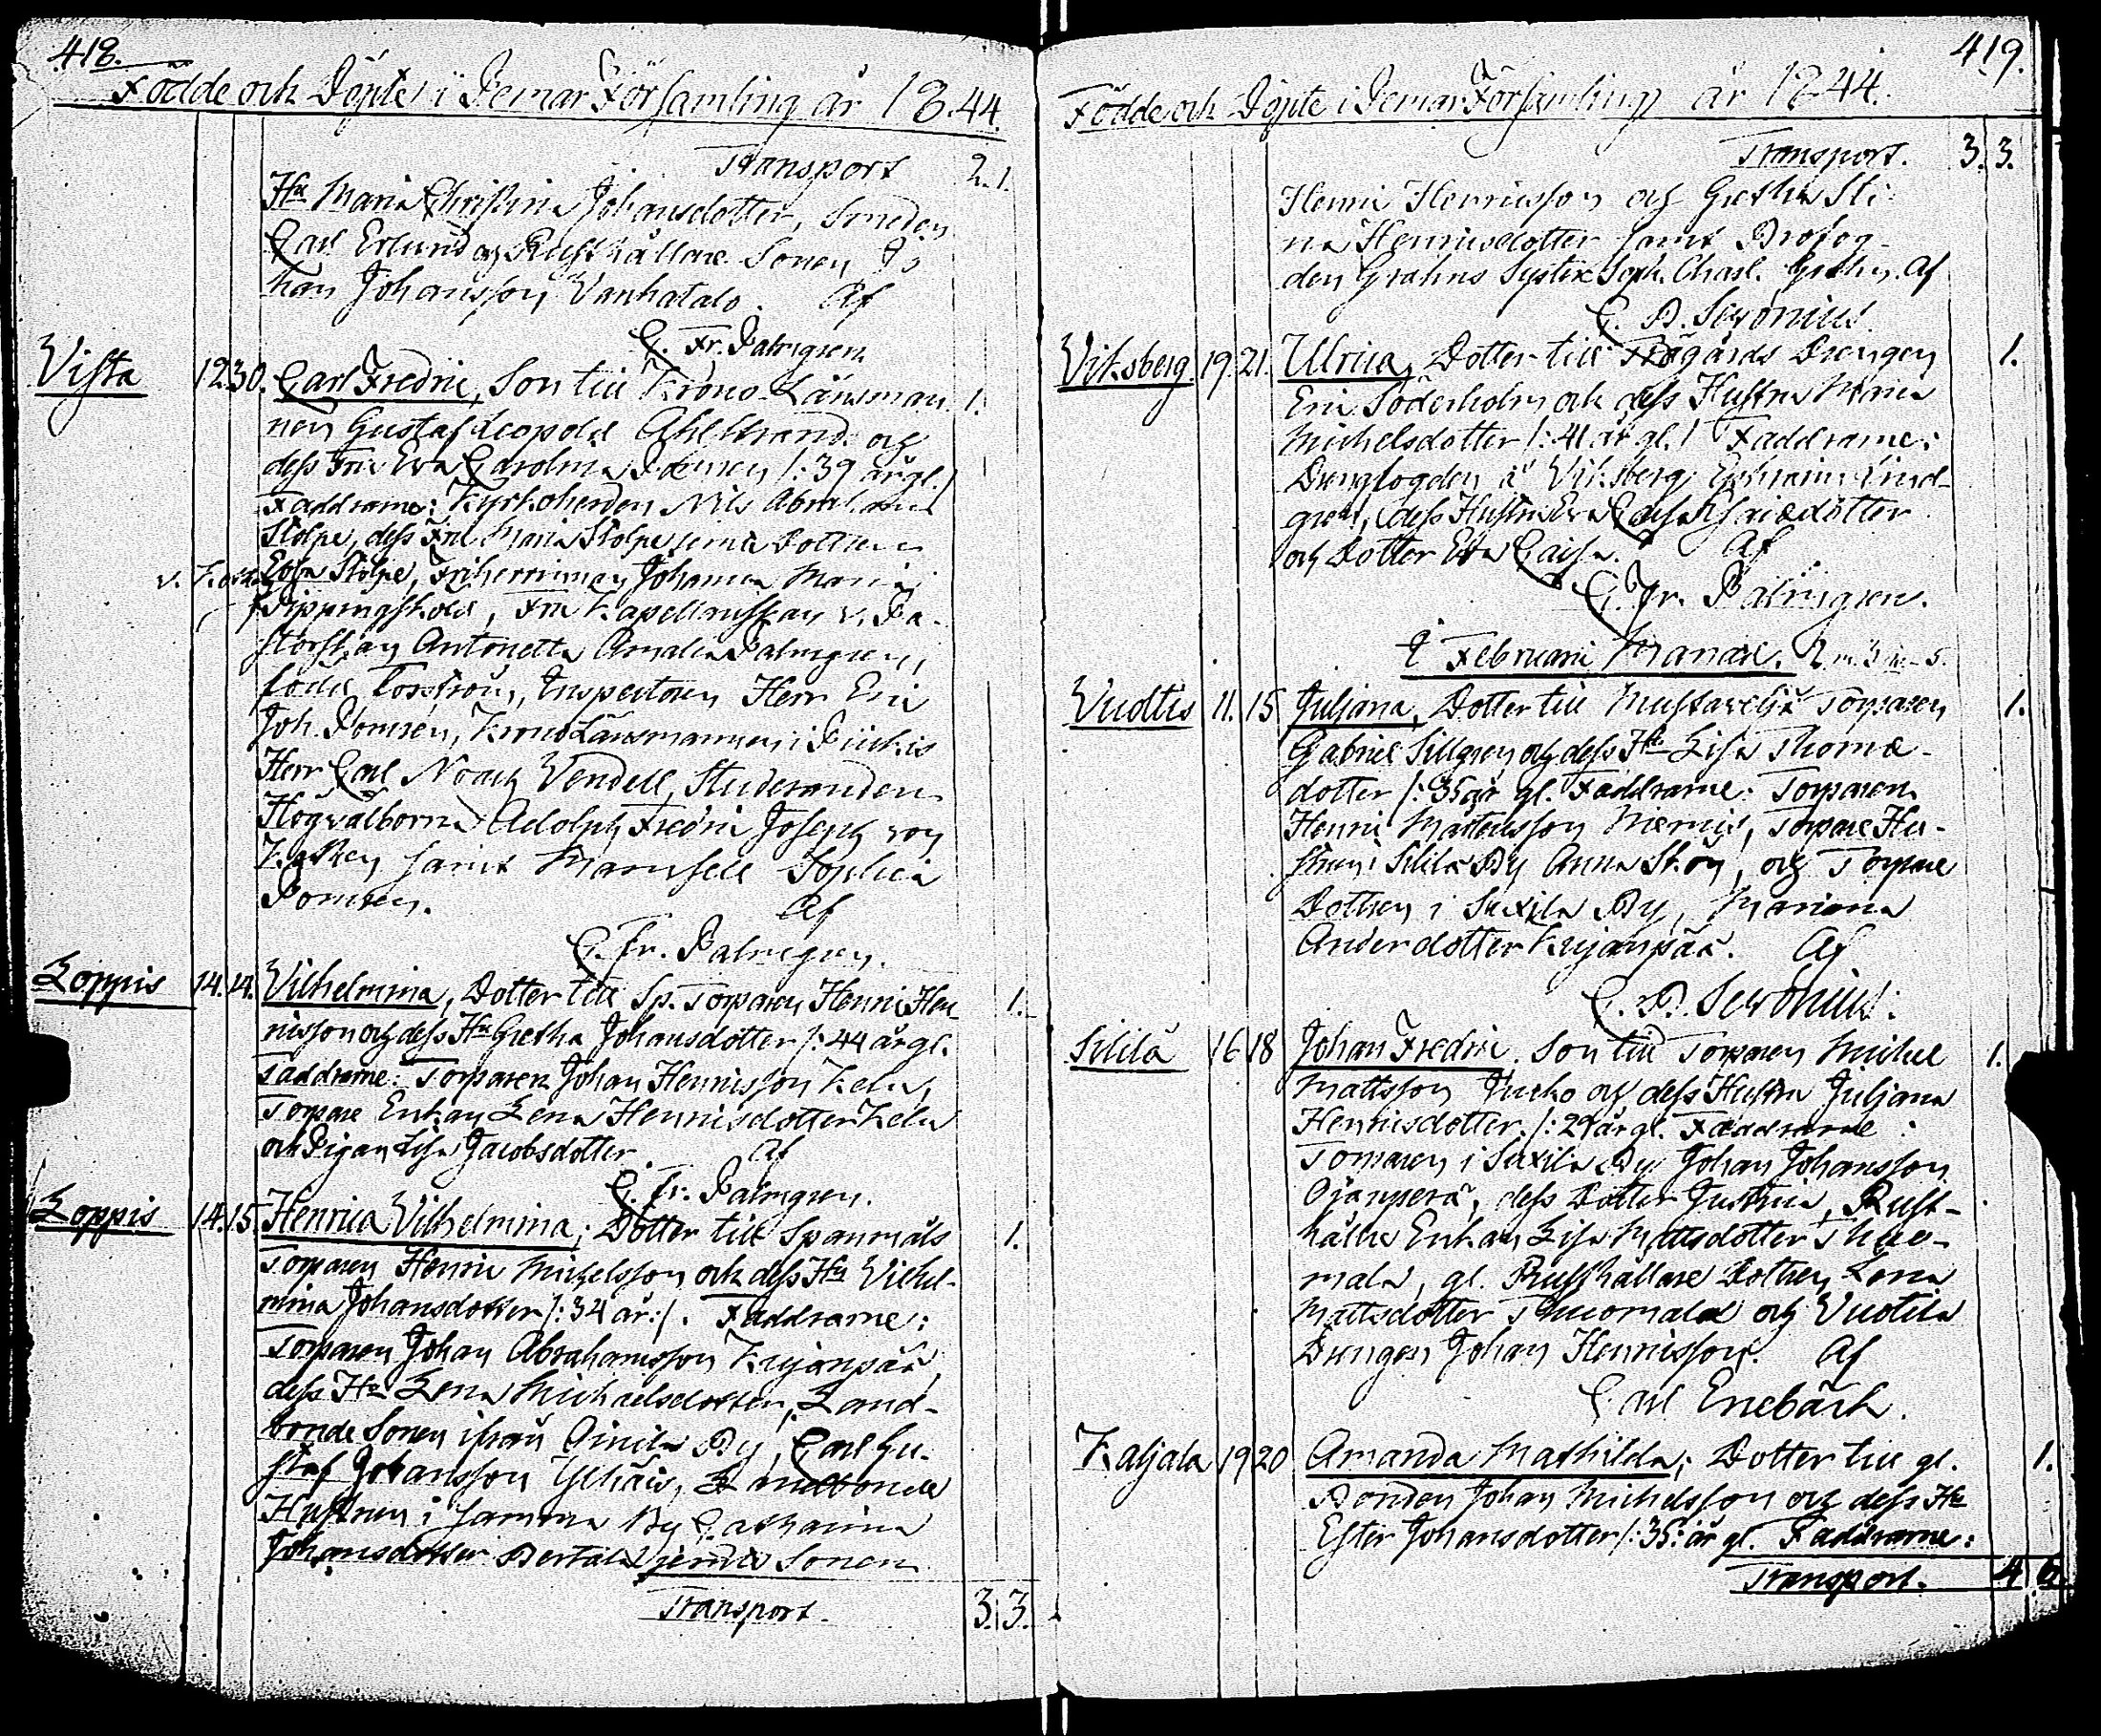 418.
Födde och Döpte i Pemar Församling år 1844.
Transport 2. 1.
Hu Maria Christina Johansdotter, Smeden
Carl Erlund og Rusthållare Sonen Jo
han Johansson Vanhatalo. Af
C. Fr. Palmgren
Vista 12 30. Carl Fredric, Son till Krono-Länsman 1.
nen Gustaf Leopold Ahlstrand og
dess Fru Eva Carolina /: 39 år gl.
Faddrarne: Kyrkoherden Nils Abraham
Stolpe, dess Fru Maria Stolpe
Stolpe, Friherrinnan Johanna Maria
Rippingsköld, Fru Kapellanskan v. Pa-
storskan Antonetta Amalia Palmgren,
född Inspectoren Herr Eric
Joh. Pomrén, Krono Länsmannen i Piikis
Herr Carl Noach Wendell, Studeranden
Högvälborne Adolph Fredric Joseph von
samt Mamsell Sophia
Pomren. Af
C. Fr. Palmgren.
Loppis 14. 14. Vilhelmina, Dotter till Sp. Torparen Henric Hen- 1.
ricsson og dess Hu Gretha Johansdotter /: 44 år gl.
Faddrarne: Torparen Johan Henricsson
Torpare Enkan Lena Henricsdotter
och Pigan Lisa Jacobsdotter. Af
C. Fr. Palmgren.
Loppis 14. 15. Henrica Vilhelmina; Dotter till Spanmåls 1.
Torparen Henric Michelsson och dess Hu Vilhel-
mina Johansdotter /: 34 år:/. Faddrarne:
Torparen Johan Abrahamsson Kujanpää,
dess Hu Lena Michaelsdotter, Land-
bonde Sonen ifrån By, Carl Gu-
staf Johansson Landbonde
Hustrun i samma By Catharina
Johansdotter Sonen
Transport. 3. 3.
419.
Födde och Döpte i Pemar Församling år 1844.
Transport. 3. 3.
Henric Henricsson og Gretha Sti-
na Henricsdotter samt Brofog-
den Grahns Syster Af
C. D. Seronius.
Viksberg. 19. 21. Ulrica, Dotter till Trägårds Drengen 1.
Eric Söderholm och dess Hustru Maria
Michelsdotter /: 41 år gl. / Faddrarne:
Drengfogden å Viksberg, Ephraim Lind-
dess Hustru Eva Caisa
och Dotter Eva Caisa. Af
C. Fr. Palmgren.
I Februarii Månad.
Vuoltis 11. 15 Juliana, Dotter till Torparen 1.
Gabriel Sillgren og dess Hu Lisa Thomæ-
dotter /: 35 år gl. Faddrarne: Torparen
Henric Mårtensson Torpare Hu-
strun i Sililä By Anna og Torpare
Dottren i Suxila By, Mariana
Andersdotter Kujanpää. Af
C. D. Seronius.
Sililä 16 18 Johan Fredric. Son till Torparen Michel 1.
Mattsson og dess Hustru Juliana
Henricsdotter. /: 29 år gl. Faddrarne:
Torparen i Suxila By Johan Johansson
Ojanperä, dess Dotter Justina, Rust-
hålls Enkan Lisa Mattsdotter Thuo-
mala, gl. Rusthållare Dottren Lena
Mattsdotter Thuomala og Vuotila
Drengen Johan Henricsson. Af
Carl Enebäck.
Kaljala 19 20 Amanda Mathilda; Dotter till gl. 1.
Bonden Johan Michelsson og dess Hu
Ester Johansdotter /: 35 år gl. Faddrarne:
Transport. 4 6